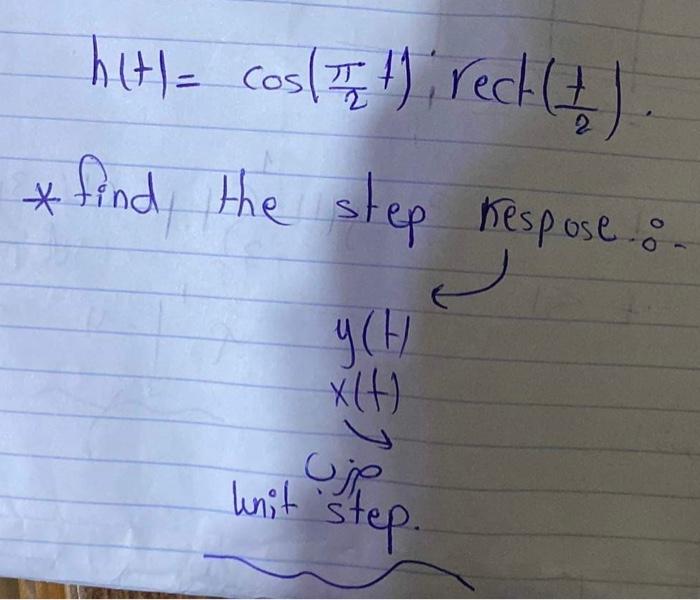 h(t) = cos(π/2 t) . rect(t/2) .
* find the step respose :-
y(t)
x(t)
unit step.